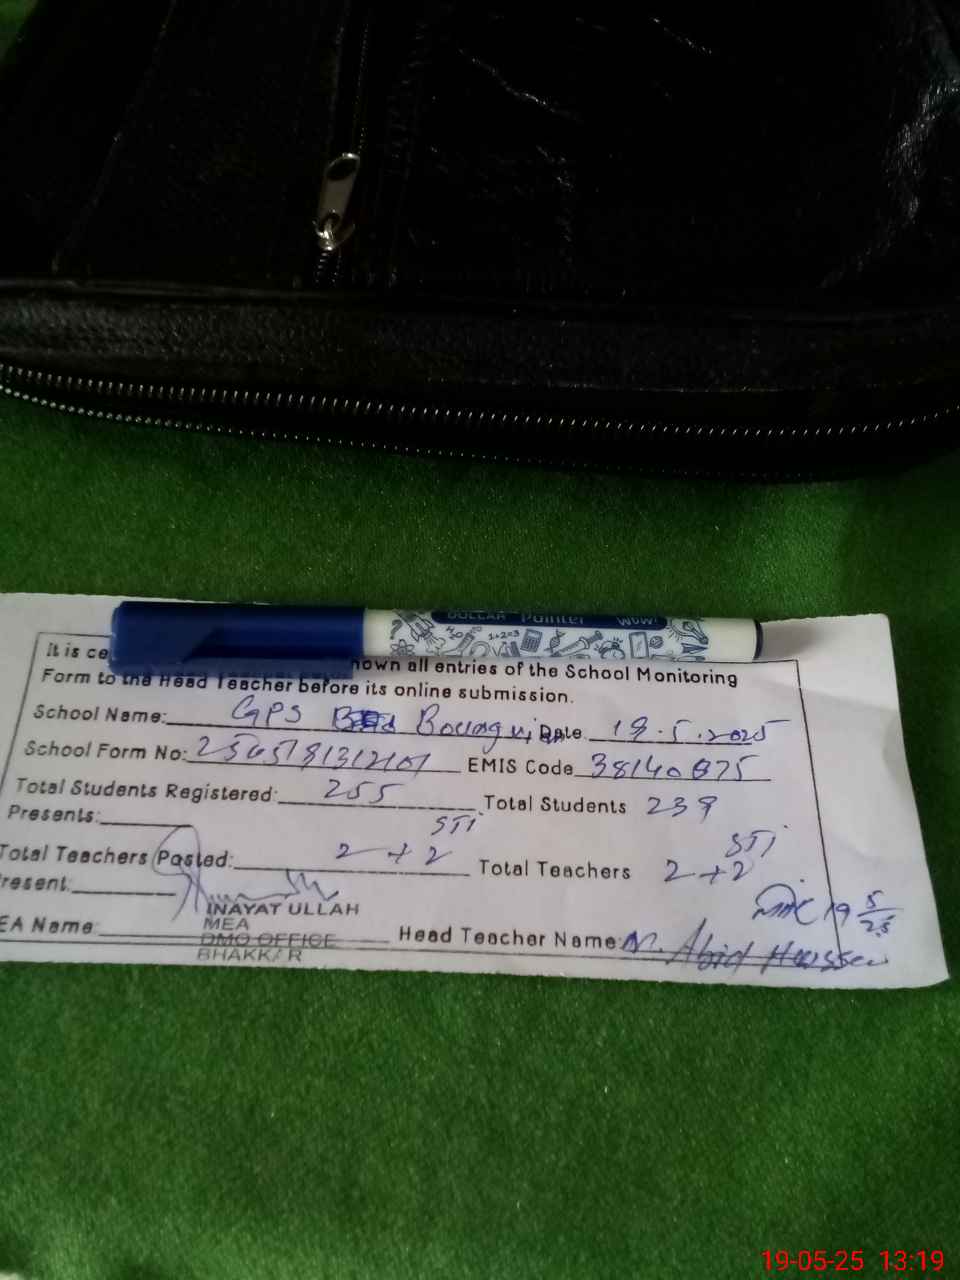 DOLLAR Pointer WOW!
1+2=3
It is ce hown all entries of the School Monitoring
Form to the Head Teacher before its online submission.
School Name: GPS Date 19.5.2025
School Form No: EMIS Code 38140075
Total Students Registered: 255 Total Students 239
Presents:
STI STI
Total Teachers Posted: 2+2 Total Teachers 2+2
resent:
INAYAT ULLAH
MEA
EA Name: DMO OFFICE Head Teacher Name: M. Abid Hussain
BHAKKAR
19 5/25
19-05-25 13:19